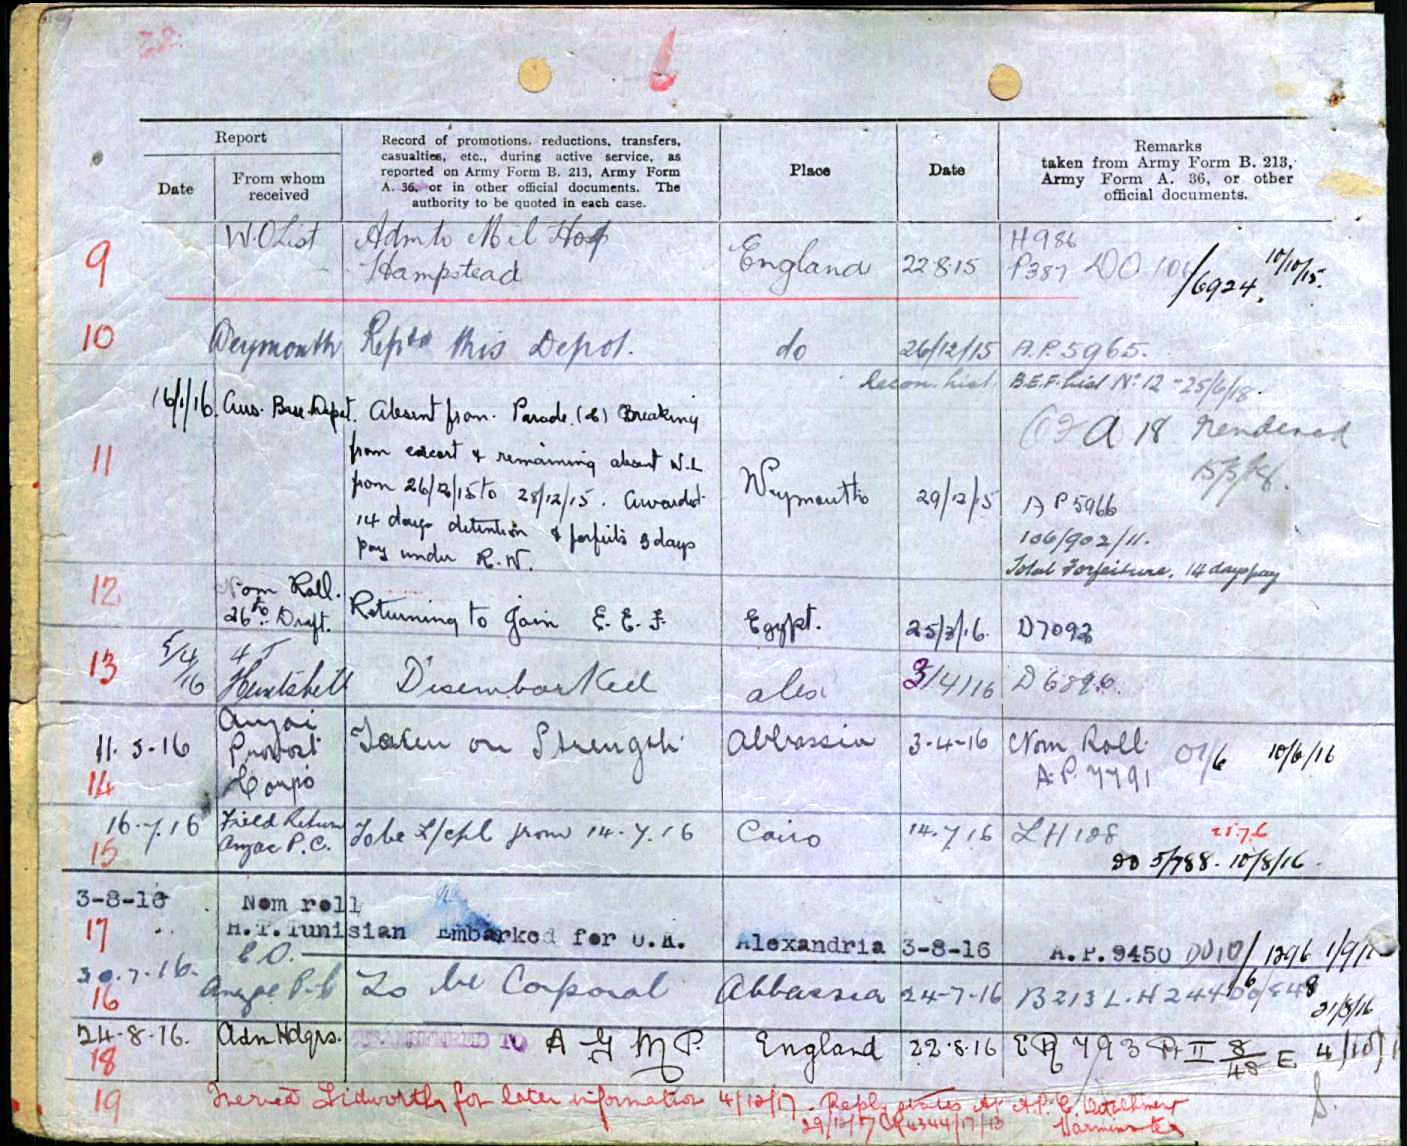 Report
Date
From whom
received
Record of promotions, reductions, transfers,
casualties, etc., during active service, as
reported on Army Form B. 213, Army Form
A. 36, or in other official documents. The
authority to be quoted in each case.
Place
Date
Remarks
taken from Army Form B. 213,
Army Form A. 36, or other
official documents.
9 W.O List Adm to Mil Hosp England 22.8.15 H986
Hampstead P387 DO 106/6924. 10/10/15.
10 Weymouth Reptd this Depot. do 26/12/15 A.P. 5965.
B.E.F. list No 12 - 25/6/18.
16/1/16 Aus. Base Depot. Absent from Parade. (2) Breaking
A 18 Rendered
11 from escort & remaining absent W.L
from 26/12/15 to 28/12/15. Awarded Weymouth 29/12/15 A P 5966
14 days detention & forfeits 3 days 106/902/11.
pay under R.W. Total Forfeiture, 14 days pay
12 Nom Roll.
26th Draft. Returning to join E.E.F. Egypt. 25/3/16. D7092
13 5/4/16 H T
Disembarked alex 3/4/16 D 6896.
Anzac
11-5-16 Provost Taken on Strength Abbassia 3-4-16 Nom Roll 10/6/16
14 Corps A.P. 7791
16.7.16 Field Return To be L/cpl from 14.7.16 Cairo 14.7.16 LH 108
15 Anzac P.C. DO 5/788. 10/8/16.
3-8-16 Nom roll
17 H.T. Tunisian Embarked for U.K. Alexandria 3-8-16 A.P. 9450 DO 10/1396 1/9/
C.O.
30.7.16. To be Corporal Abbassia 24-7-16 B213 L.H 244
16 31/8/16
24-8-16. Adm Hdqrs. TRANSFERRED TO A G M P. England 22.8.16 793 II 8/48 E 4/10/
18
19 Tidworth for later information 4/10/17. Reply states At A.P.C. Detachment
29/10/17 Warminster